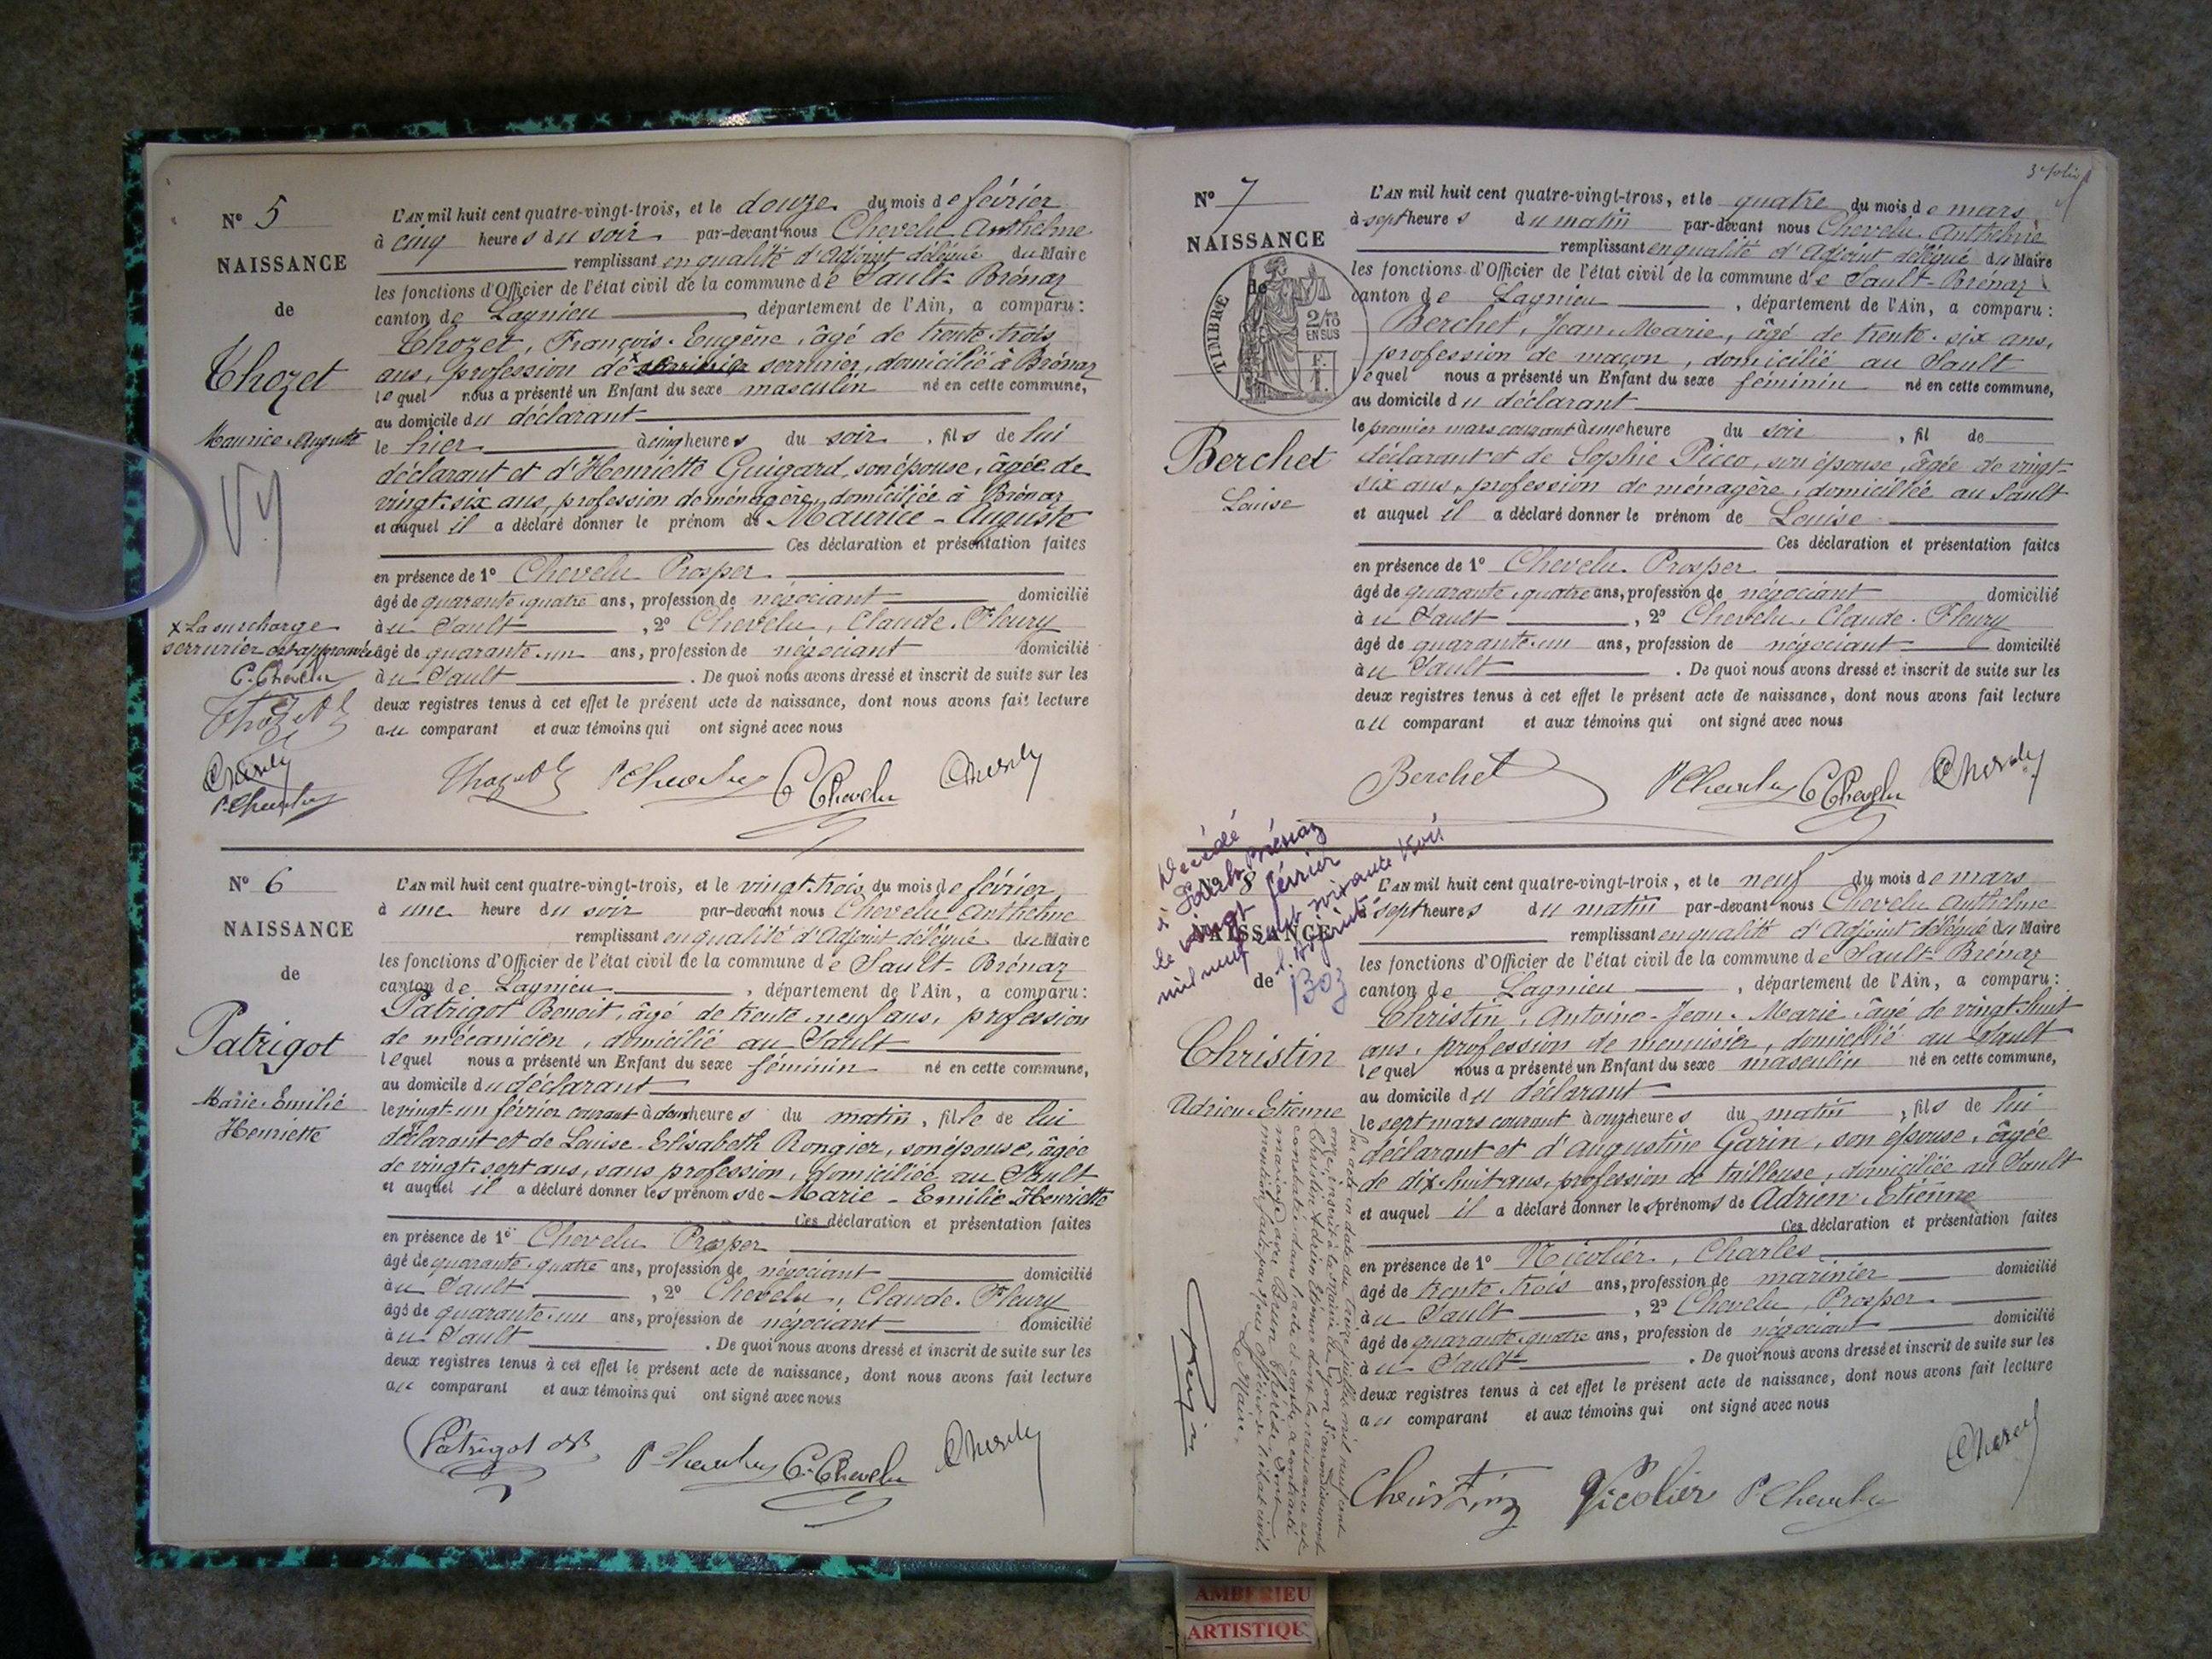 N° 5
NAISSANCE
de
Thozet
Maurice-Auguste
L'AN mil huit cent quatre-vingt-trois, et le douze du mois de février
à cinq heures du soir par-devant nous Chevelu Anthelme
remplissant en qualité d'Adjoint délégué du Maire
les fonctions d'Officier de l'état civil de la commune de Sault-Brénaz
canton de Lagnieu, département de l'Ain, a comparu:
Thozet, François-Eugène, âgé de trente-trois
ans, profession de serrurier, domicilié à Brénaz
lequel nous a présenté un Enfant du sexe masculin né en cette commune,
au domicile du déclarant
le hier à cinq heures du soir, fils de lui
déclarant et d'Henriette Guigard, son épouse, âgée de
vingt-six ans, profession de ménagère, domiciliée à Brénaz
et auquel il a déclaré donner le prénom de Maurice-Auguste
Ces déclaration et présentation faites
en présence de 1° Chevelu Prosper
âgé de quarante-quatre ans, profession de négociant domicilié
au Sault, 2° Chevelu, Claude-Fleury
âgé de quarante-un ans, profession de négociant domicilié
au Sault. De quoi nous avons dressé et inscrit de suite sur les
deux registres tenus à cet effet le présent acte de naissance, dont nous avons fait lecture
au comparant et aux témoins qui ont signé avec nous
x La surcharge
serrurier est approuvée
C. Chevelu
Thozet
Chevelu
P. Chevelu
Thozet P. Chevelu C. Chevelu Chevelu
N° 6
NAISSANCE
de
Patrigot
Marie-Emilie
Henriette
L'AN mil huit cent quatre-vingt-trois, et le vingt-trois du mois de février
à une heure du soir par-devant nous Chevelu Anthelme
remplissant en qualité d'Adjoint délégué du Maire
les fonctions d'Officier de l'état civil de la commune de Sault-Brénaz
canton de Lagnieu, département de l'Ain, a comparu:
Patrigot Benoit, âgé de trente-neuf ans, profession
de mécanicien, domicilié au Sault
lequel nous a présenté un Enfant du sexe féminin né en cette commune,
au domicile du déclarant
le vingt-un février courant à heures du matin, fille de lui
déclarant et de Louise-Elisabeth Rongier, son épouse, âgée
de vingt-sept ans, sans profession, domiciliée au Sault
et auquel il a déclaré donner les prénoms de Marie-Emilie Henriette
Ces déclaration et présentation faites
en présence de 1° Chevelu Prosper
âgé de quarante-quatre ans, profession de négociant domicilié
au Sault, 2° Chevelu, Claude-Fleury
âgé de quarante-un ans, profession de négociant domicilié
au Sault. De quoi nous avons dressé et inscrit de suite sur les
deux registres tenus à cet effet le présent acte de naissance, dont nous avons fait lecture
au comparant et aux témoins qui ont signé avec nous
Patrigot P. Chevelu C. Chevelu Chevelu
3e folio
N° 7
NAISSANCE
de
TIMBRE
2/10
EN SUS
F.
1.
Berchet
Louise
L'AN mil huit cent quatre-vingt-trois, et le quatre du mois de mars
à sept heures du matin par-devant nous Chevelu Anthelme
remplissant en qualité d'Adjoint délégué du Maire
les fonctions d'Officier de l'état civil de la commune de Sault-Brénaz
canton de Lagnieu, département de l'Ain, a comparu:
Berchet, Jean-Marie, âgé de trente-six ans,
profession de maçon, domicilié au Sault
lequel nous a présenté un Enfant du sexe féminin né en cette commune,
au domicile du déclarant
le premier mars courant à une heure du soir, fil de
déclarant et de Sophie Picco, son épouse, âgée de vingt-
six ans, profession de ménagère, domiciliée au Sault
et auquel il a déclaré donner le prénom de Louise
Ces déclaration et présentation faites
en présence de 1° Chevelu Prosper
âgé de quarante-quatre ans, profession de négociant domicilié
au Sault, 2° Chevelu, Claude-Fleury
âgé de quarante-un ans, profession de négociant domicilié
au Sault. De quoi nous avons dressé et inscrit de suite sur les
deux registres tenus à cet effet le présent acte de naissance, dont nous avons fait lecture
au comparant et aux témoins qui ont signé avec nous
Berchet P. Chevelu C. Chevelu Chevelu
Décédé
à Sault-Brénaz
le vingt février
mil neuf cent soixante trois
l'Adjoint
N° 8
NAISSANCE
de
Christin
Adrien-Etienne
L'AN mil huit cent quatre-vingt-trois, et le neuf du mois de mars
à sept heures du matin par-devant nous Chevelu Anthelme
remplissant en qualité d'Adjoint délégué du Maire
les fonctions d'Officier de l'état civil de la commune de Sault-Brénaz
canton de Lagnieu, département de l'Ain, a comparu:
Christin, Antoine-Jean-Marie, âgé de vingt-huit
ans, profession de menuisier, domicilié au Sault
lequel nous a présenté un Enfant du sexe masculin né en cette commune,
au domicile du déclarant
le sept mars courant à onze heures du matin, fils de lui
déclarant et d'Augustine Garin, son épouse, âgée
de dix-huit ans, profession de tailleuse, domiciliée au Sault
et auquel il a déclaré donner les prénoms de Adrien-Etienne
Ces déclaration et présentation faites
en présence de 1° Nicolier, Charles
âgé de trente-trois ans, profession de marinier domicilié
au Sault, 2° Chevelu, Prosper
âgé de quarante-quatre ans, profession de négociant domicilié
au Sault. De quoi nous avons dressé et inscrit de suite sur les
deux registres tenus à cet effet le présent acte de naissance, dont nous avons fait lecture
au comparant et aux témoins qui ont signé avec nous
Christin Nicolier P. Chevelu Chevelu
Par acte en date du treize juillet mil neuf cent
onze, inscrit à la Mairie de Lyon arrondissement
Christin Adrien Etienne dont la naissance est
constatée dans l'acte ci-contre a contracté
mariage avec Brun Thérèse, dont
mention faite par nous officier de l'état civil.
Le Maire,
AMBERIEU
ARTISTIQUE